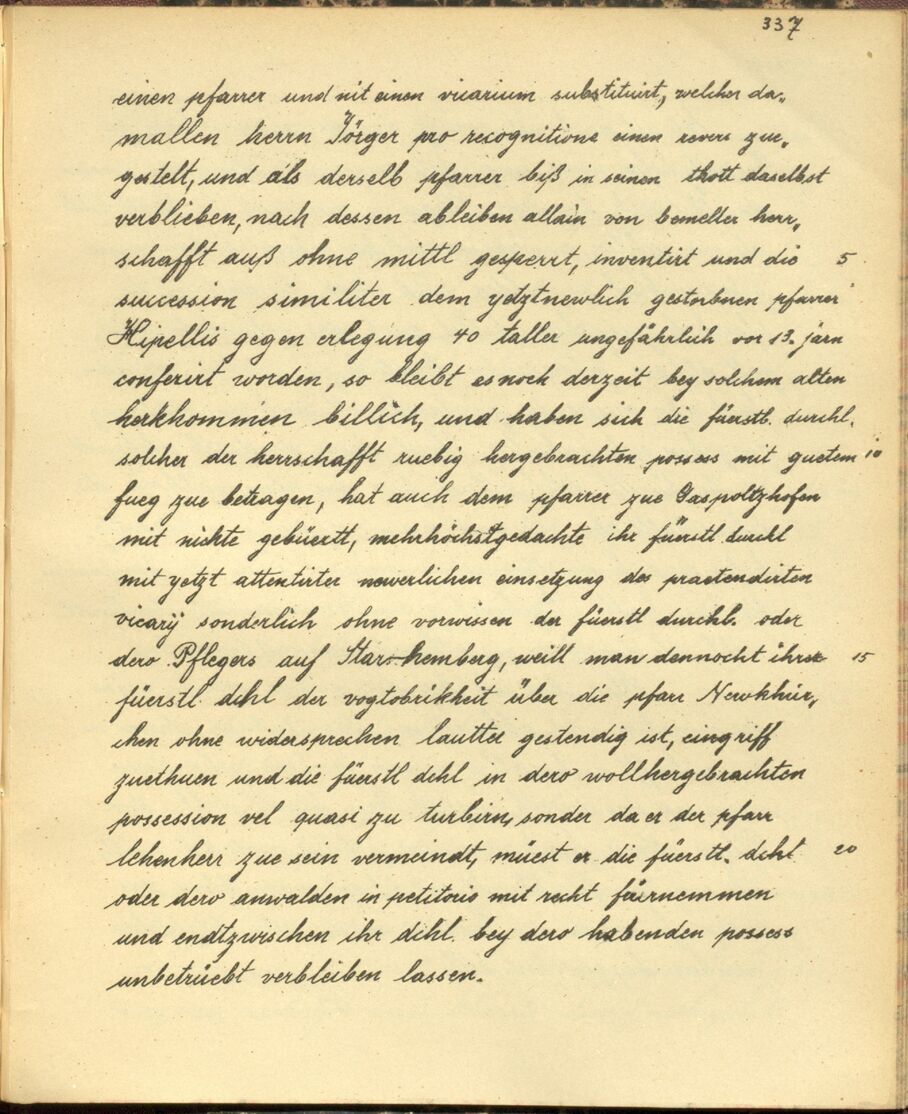 337
einen pfarrer und nit einen vicarium substituirt, welcher da„
mallen herrn Jörger pro recognitione einen revers zue„
gestelt, und als derselb pfarrer biß in seinen thott daselbst
verblieben, nach dessen ableiben allain von bemelter herr„
schafft auß ohne mittl gesperrt, inventirt und die 5
succession similiter dem yetztnewlich gestorbenen pfarrer
Hipellis gegen erlegung 40 taller ungefährlich vor 13. jarn
conferirt worden, so bleibt es noch derzeit bey solchem alten
herkhommen billich, und haben sich die füerstl. durchl.
solcher der herrschafft ruebig hergebrachten possess mit guetem 10
fueg zue betragen, hat auch dem pfarrer zue Gaspoltzhofen
mit nichte gebüertt, mehrhöchstgedachte ihr füerstl durchl
mit yetzt attentirter newerlichen einsetzung des praetendirten
vicarÿ sonderlich ohne vorwissen der füerstl durchl. oder
dero Pflegers auf Starhemberg, weill man dennocht ihrer 15
füerstl dchl der vogtobrikheit über die pfarr Newkhür„
chen ohne widersprechen lautter gestendig ist, eingriff
zuethuen und die füerstl dchl in dero wollhergebrachten
possession vel quasi zu turbirn, sonder da er der pfarr
lehenherr zue sein vermeindt, müest er die füerstl. dchl 20
oder dero anwalden in petitorio mit recht fürnemmen
und endtzwischen ihr dchl. bey dero habenden possess
unbetrüebt verbleiben lassen.